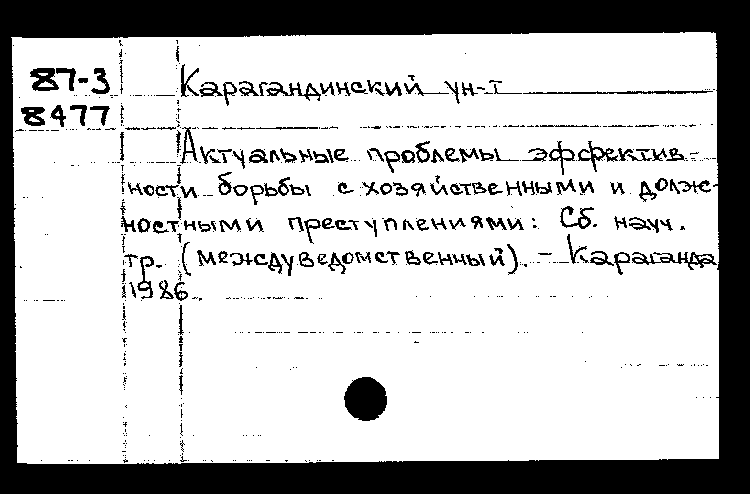 87-3 Карагандинский ун-т
8477
Актуальные проблемы эффектив-
ности борьбы с хозяйственными и долж-
ностными преступлениями: Сб. науч.
тр. (междуведомственный). - Караганда
1986.